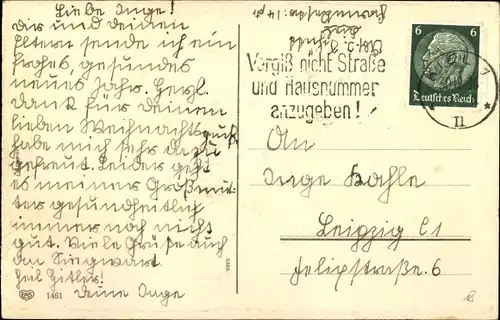 Liebe Inge!
Dir und deinen
Eltern sende ich ein
frohes, gesundes
neues Jahr. Herzl.
dank für deinen
lieben Weihnachtsgruß
habe mich sehr da zu
gefreut. Leider geht
es meiner Großmut-
ter gesundheitlich
immer noch nicht
gut. Viele Grüße auch
an Siegwart
Heil Hitler!
Deine Inge
1461
Vergiß nicht Straße
und Hausnummer
anzugeben!
6 6
Deutsches Reich
II
An
Inge Kahle
Leipzig C1
Felixstraße 6